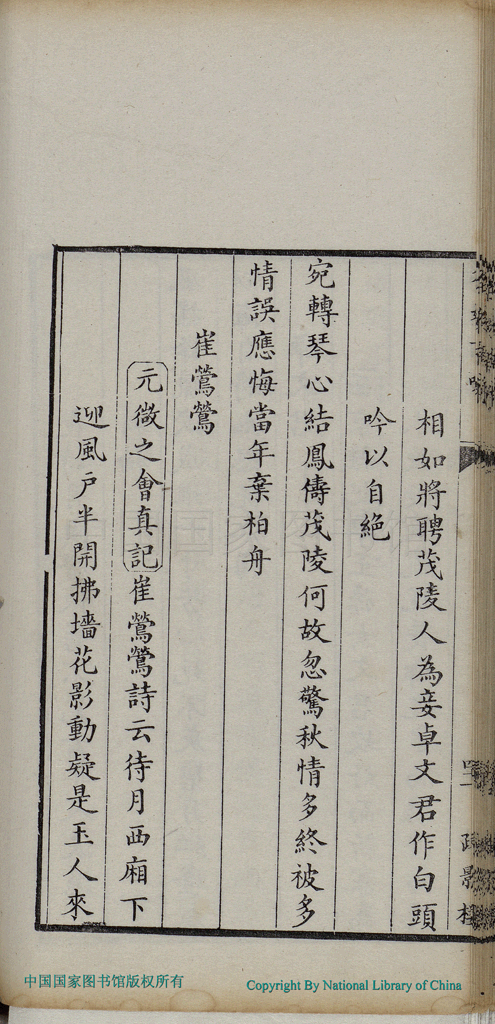 相如將聘茂陵人為妾卓文君作白頭
吟以自絕
宛轉琴心結鳳儔茂陵何故忽驚秋情多終被多
情誤應悔當年棄柏舟
崔鶯鶯
元微之會真記崔鶯鶯詩云待月西廂下
迎風戶半開拂墻花影動疑是玉人來
中国国家图书馆版权所有
Copyright By National Library of China